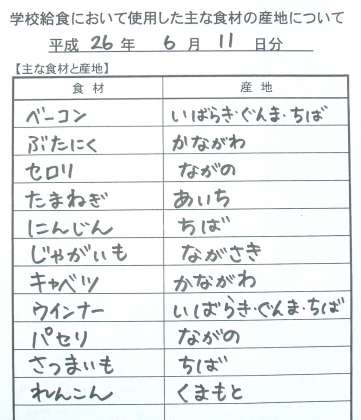 学校給食において使用した主な食材の産地について
平成 26 年 6 月 11 日分
【主な食材と産地】
食材 産地
ベーコン いばらき・ぐんま・ちば
ぶたにく かながわ
セロリ ながの
たまねぎ あいち
にんじん ちば
じゃがいも ながさき
キャベツ かながわ
ウインナー いばらき・ぐんま・ちば
パセリ ながの
さつまいも ちば
れんこん くまもと